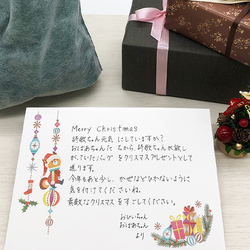 Merry Christmas
詩歌ちゃん元気にしていますか?
おばあちゃんたちから、詩歌ちゃんが欲し
がっていたバッグをクリスマスプレゼントとして
送ります。
今年もあと少し、かぜなどひかないように
気を付けてくださいね。
素敵なクリスマスをすごしてください。
おじいちゃん
おばあちゃん
より